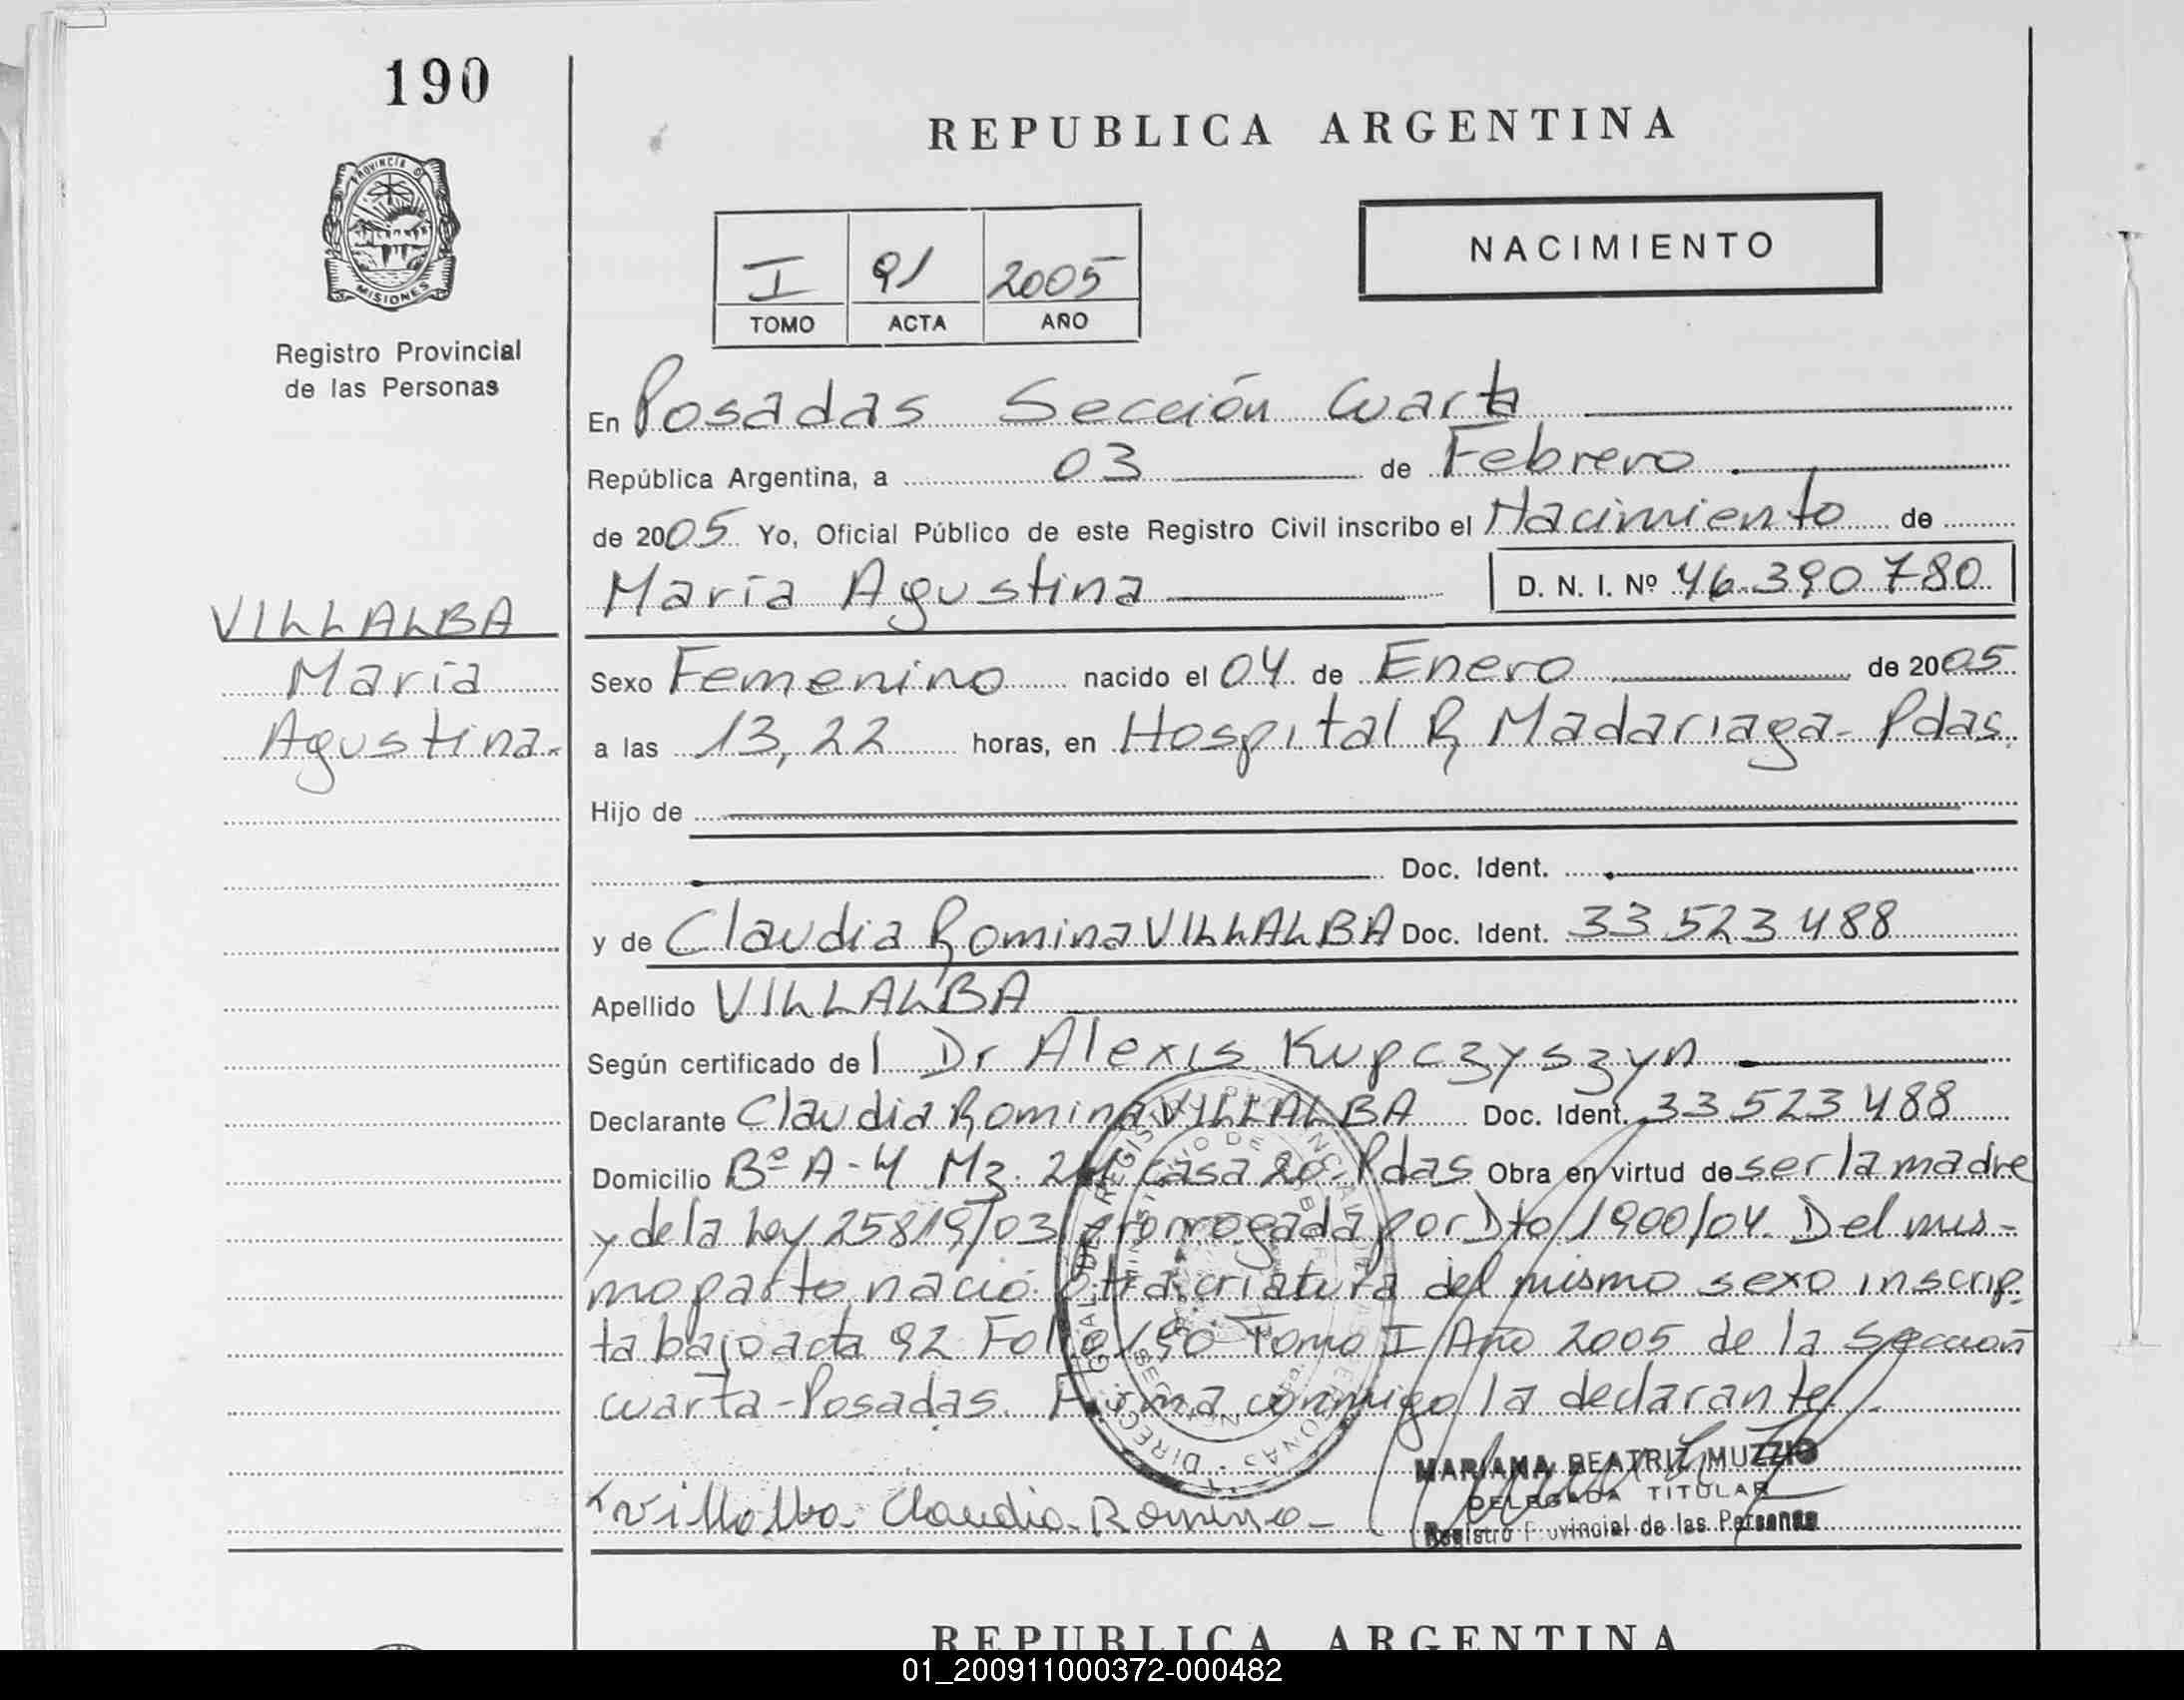 190
REPUBLICA ARGENTINA
PROVINCIA D
MISIONES
Registro Provincial
de las Personas
I 91 2005
TOMO ACTA AÑO
NACIMIENTO
En Posadas Sección Cuarta
República Argentina, a 03 de Febrero
de 2005 Yo, Oficial Público de este Registro Civil inscribo el Nacimiento de
María Agustina D. N. I. Nº 46.390.780
VILLALBA
María
Agustina.
Sexo Femenino nacido el 04 de Enero de 2005
a las 13,22 horas, en Hospital R Madariaga - Pdas.
Hijo de
Doc. Ident.
y de Claudia Romina VILLALBA Doc. Ident. 33 523 488
Apellido VILLALBA
Según certificado del Dr Alexis Kupczyszyn
Declarante Claudia Romina VILLALBA Doc. Ident. 33 523 488
Domicilio Bº A-4 Mz. Casa 20. Pdas Obra en virtud de ser la madre
y de la Ley 25819/03 prorrogada por Dto 1900/04. Del mis-
mo parto nació otra criatura del mismo sexo inscrip.
ta bajo acta 92 Folio 190 Tomo I Año 2005 de la Sección
cuarta - Posadas. Firma conmigo la declarante.
Villalba Claudia Romina
MARIANA BEATRIZ MUZZIO
DELEGADA TITULAR
Registro Provincial de las Personas
REPUBLICA ARGENTINA
01_200911000372-000482